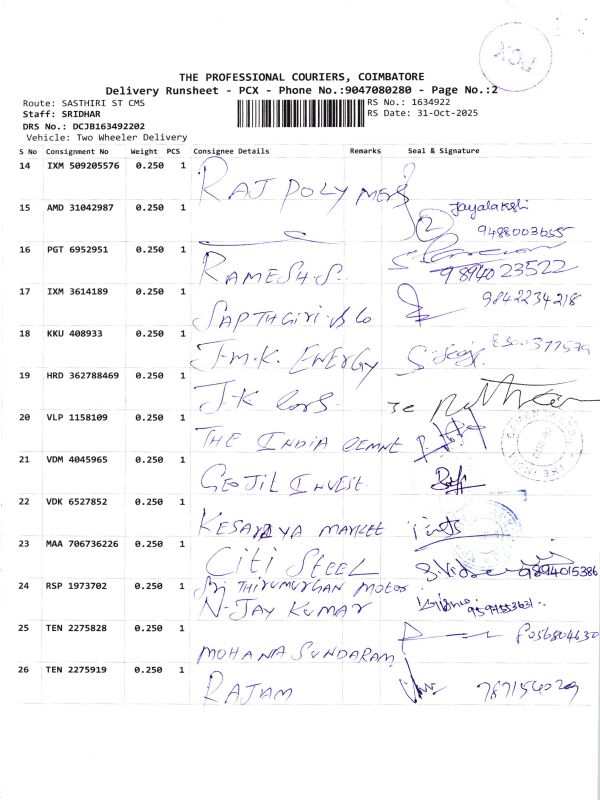 PCX
THE PROFESSIONAL COURIERS, COIMBATORE
Delivery Runsheet - PCX - Phone No.:9047080280 - Page No.:2
Route: SASTHIRI ST CMS
RS No.: 1634922
Staff: SRIDHAR
RS Date: 31-Oct-2025
DRS No.: DCJB163492202
Vehicle: Two Wheeler Delivery
S No Consignment No Weight PCS Consignee Details Remarks Seal & Signature
14 IXM 509205576 0.250 1 RAJ POLYMERS
15 AMD 31042987 0.250 1 2 Jayalakshi
9488003655
16 PGT 6952951 0.250 1 RAMESH.S.
9894023522
17 IXM 3614189 0.250 1 9842234218
18 KKU 408933 0.250 1 J.M.K. ENERGY
19 HRD 362788469 0.250 1 J.K
20 VLP 1158109 0.250 1 THE INDIA CEMNT
21 VDM 4045965 0.250 1 GEOJIL INVEST
22 VDK 6527852 0.250 1 MARKET
23 MAA 706736226 0.250 1 CITI STEEL
9894015386
24 RSP 1973702 0.250 1 Sri THIRUMURGHAN MOTOR
N. JAY KUMAR
25 TEN 2275828 0.250 1 MOHANA SUNDARAM
8056804630
26 TEN 2275919 0.250 1 RAJAM